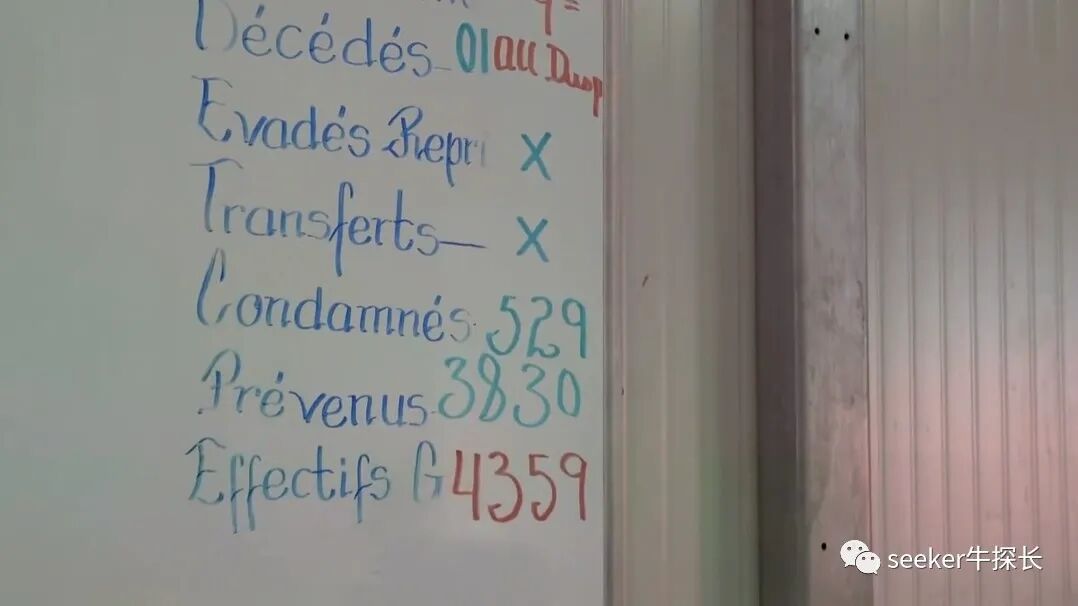 Décédés 01 au Disp
Evadés Repri X
Transferts X
Condamnés 529
Prévenus 3830
Effectifs G 4359
seeker牛探长